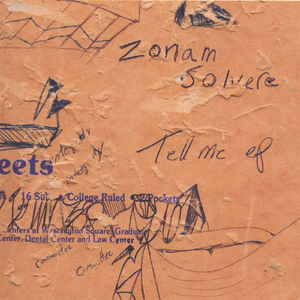 zonam
solvere
Tell me of
eets
16 Su College Ruled 2 Pockets
nters at Washington Square, Graduate
Center, Dental Center and Law Center
Committee
Committee